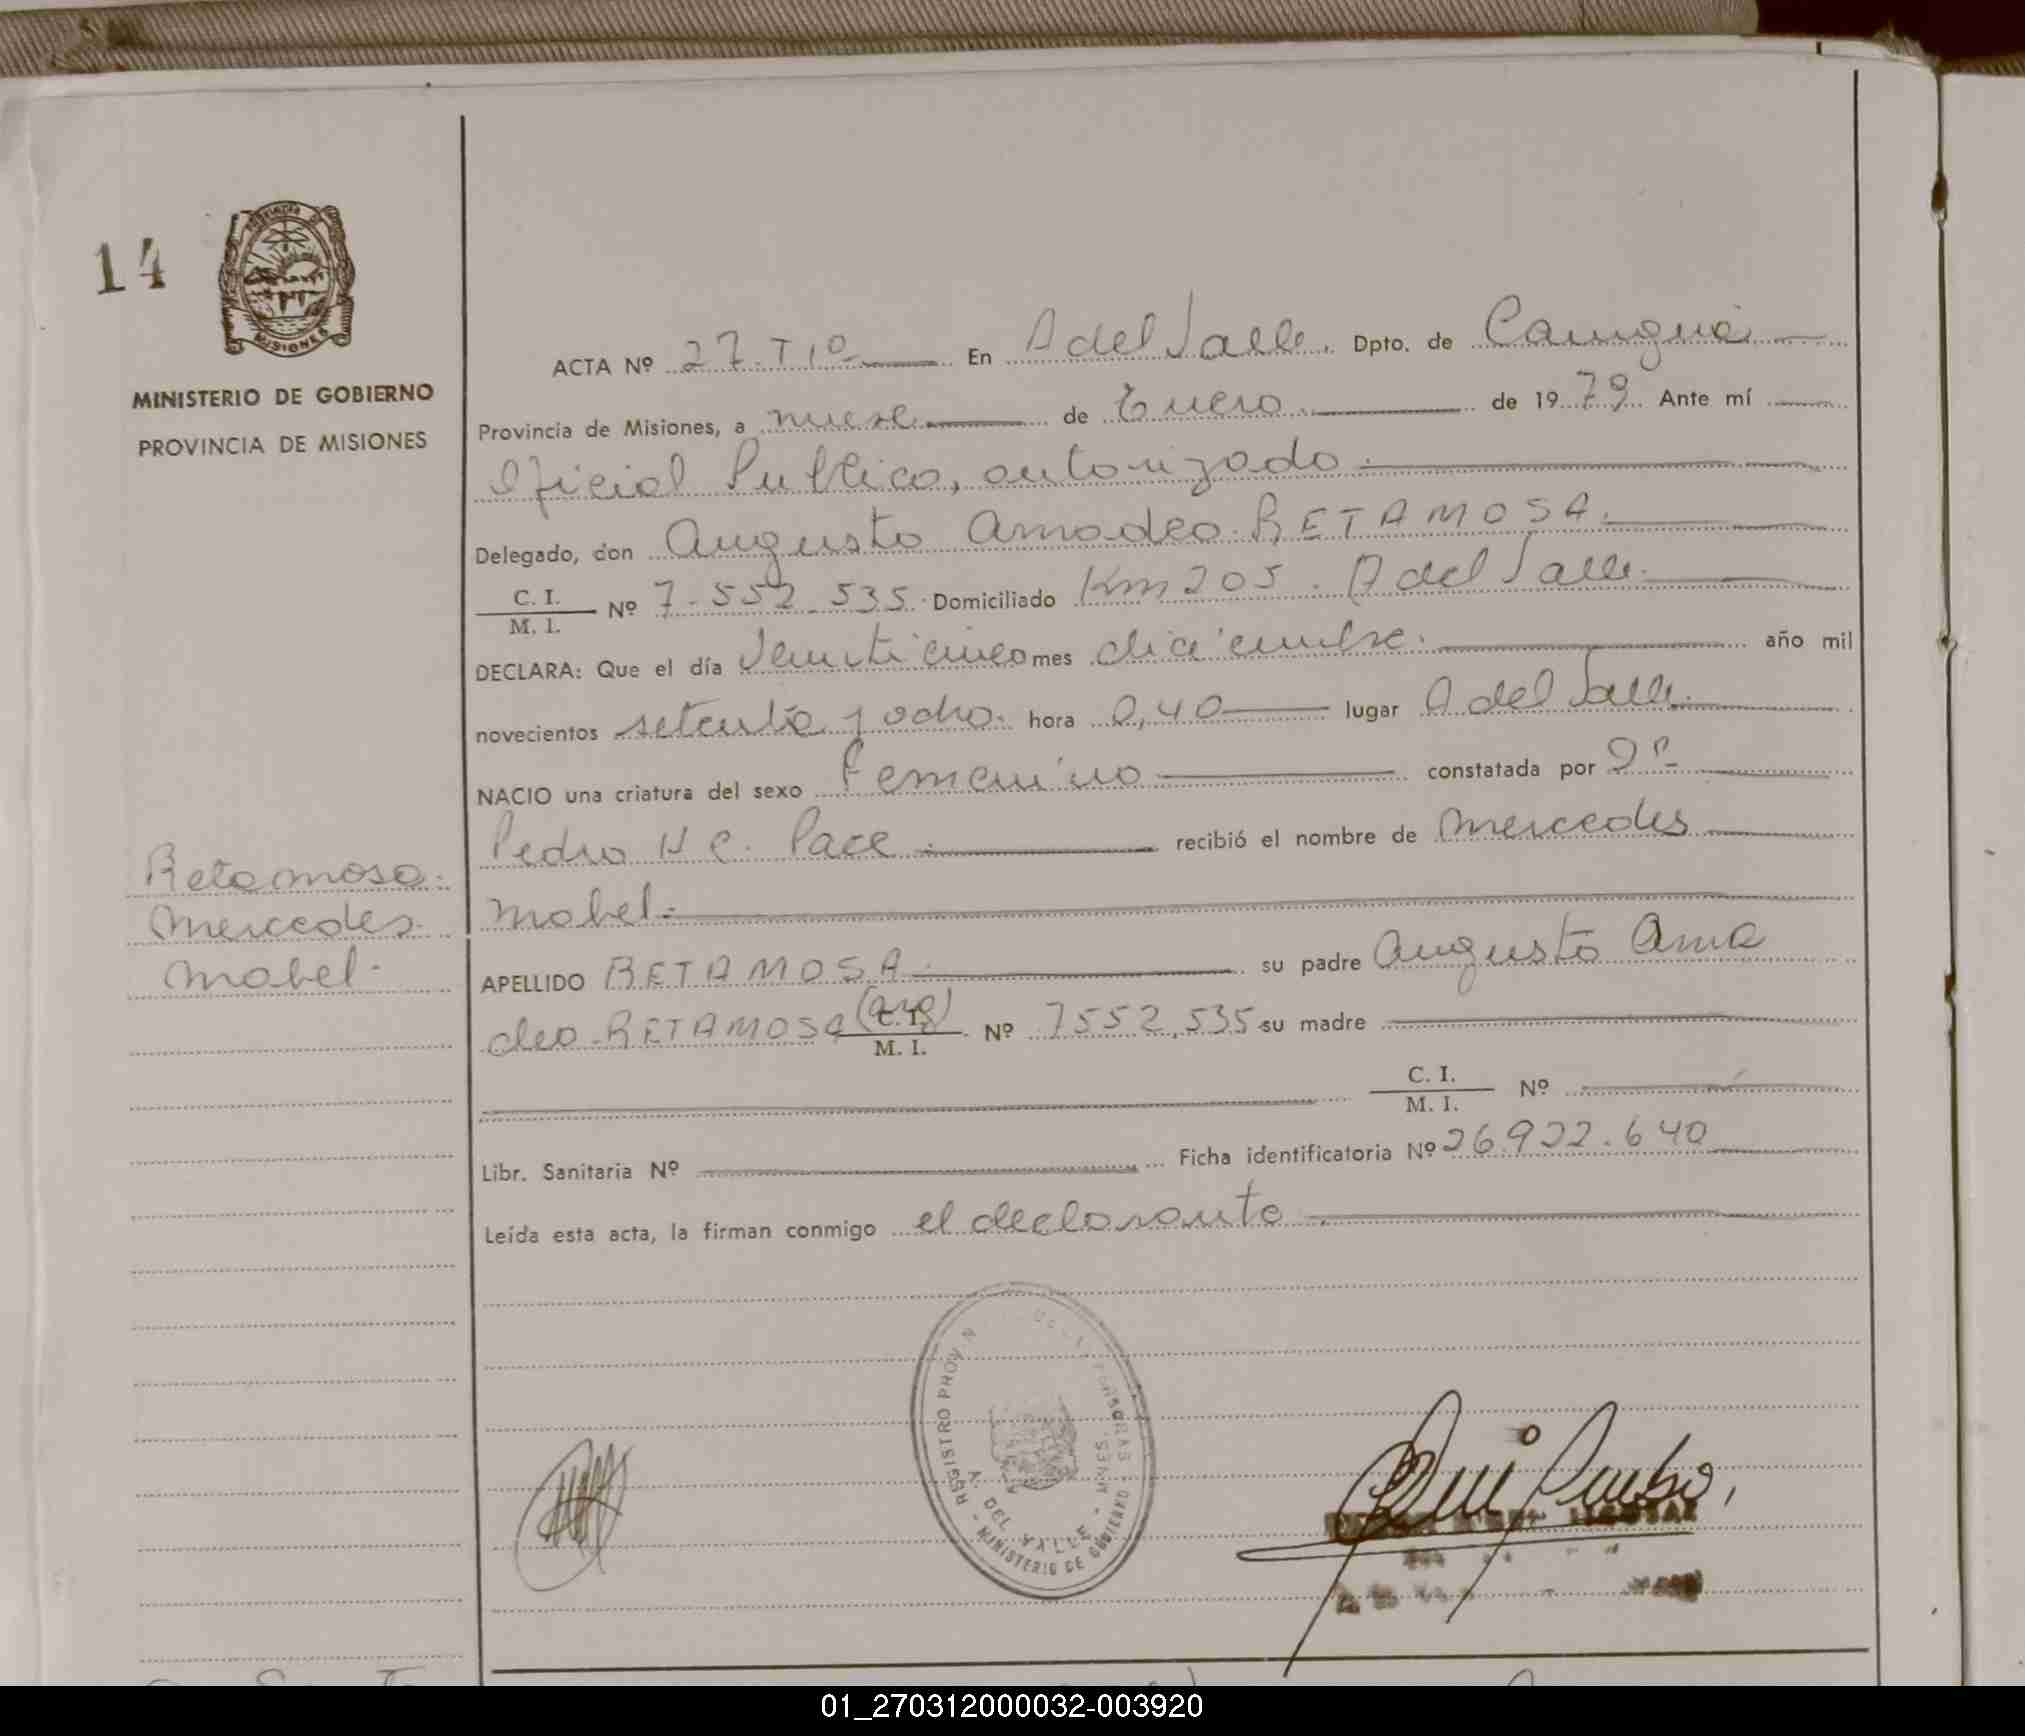 14
MISIONES
MINISTERIO DE GOBIERNO
PROVINCIA DE MISIONES
ACTA Nº 27. T 1º En A del Valle. Dpto. de Cainguá
Provincia de Misiones, a nueve de Enero de 1979 Ante mí
Oficial Publico, autorizado
Delegado, don Augusto Amadeo RETAMOSA.
C. I.
M. I. Nº 7.552.535. Domiciliado Km 205. A del Valle.
DECLARA: Que el día Veinticinco mes diciembre. año mil
novecientos setenta y ocho. hora 0,40 lugar A del Valle.
NACIO una criatura del sexo Femenino constatada por Dr
Pedro H C. Pace. recibió el nombre de Mercedes
Mabel.
Retamosa.
Mercedes.
Mabel.
APELLIDO RETAMOSA. su padre Augusto Ama
deo RETAMOSA (arg) C. I.
M. I. Nº 7552.535 su madre
C. I.
M. I. Nº
Libr. Sanitaria Nº Ficha identificatoria Nº 26.922.640
Leída esta acta, la firman conmigo el declarante
REGISTRO PROV
MINISTERIO DE GOBIERNO
A. DEL VALLE - MNES.
01_270312000032-003920